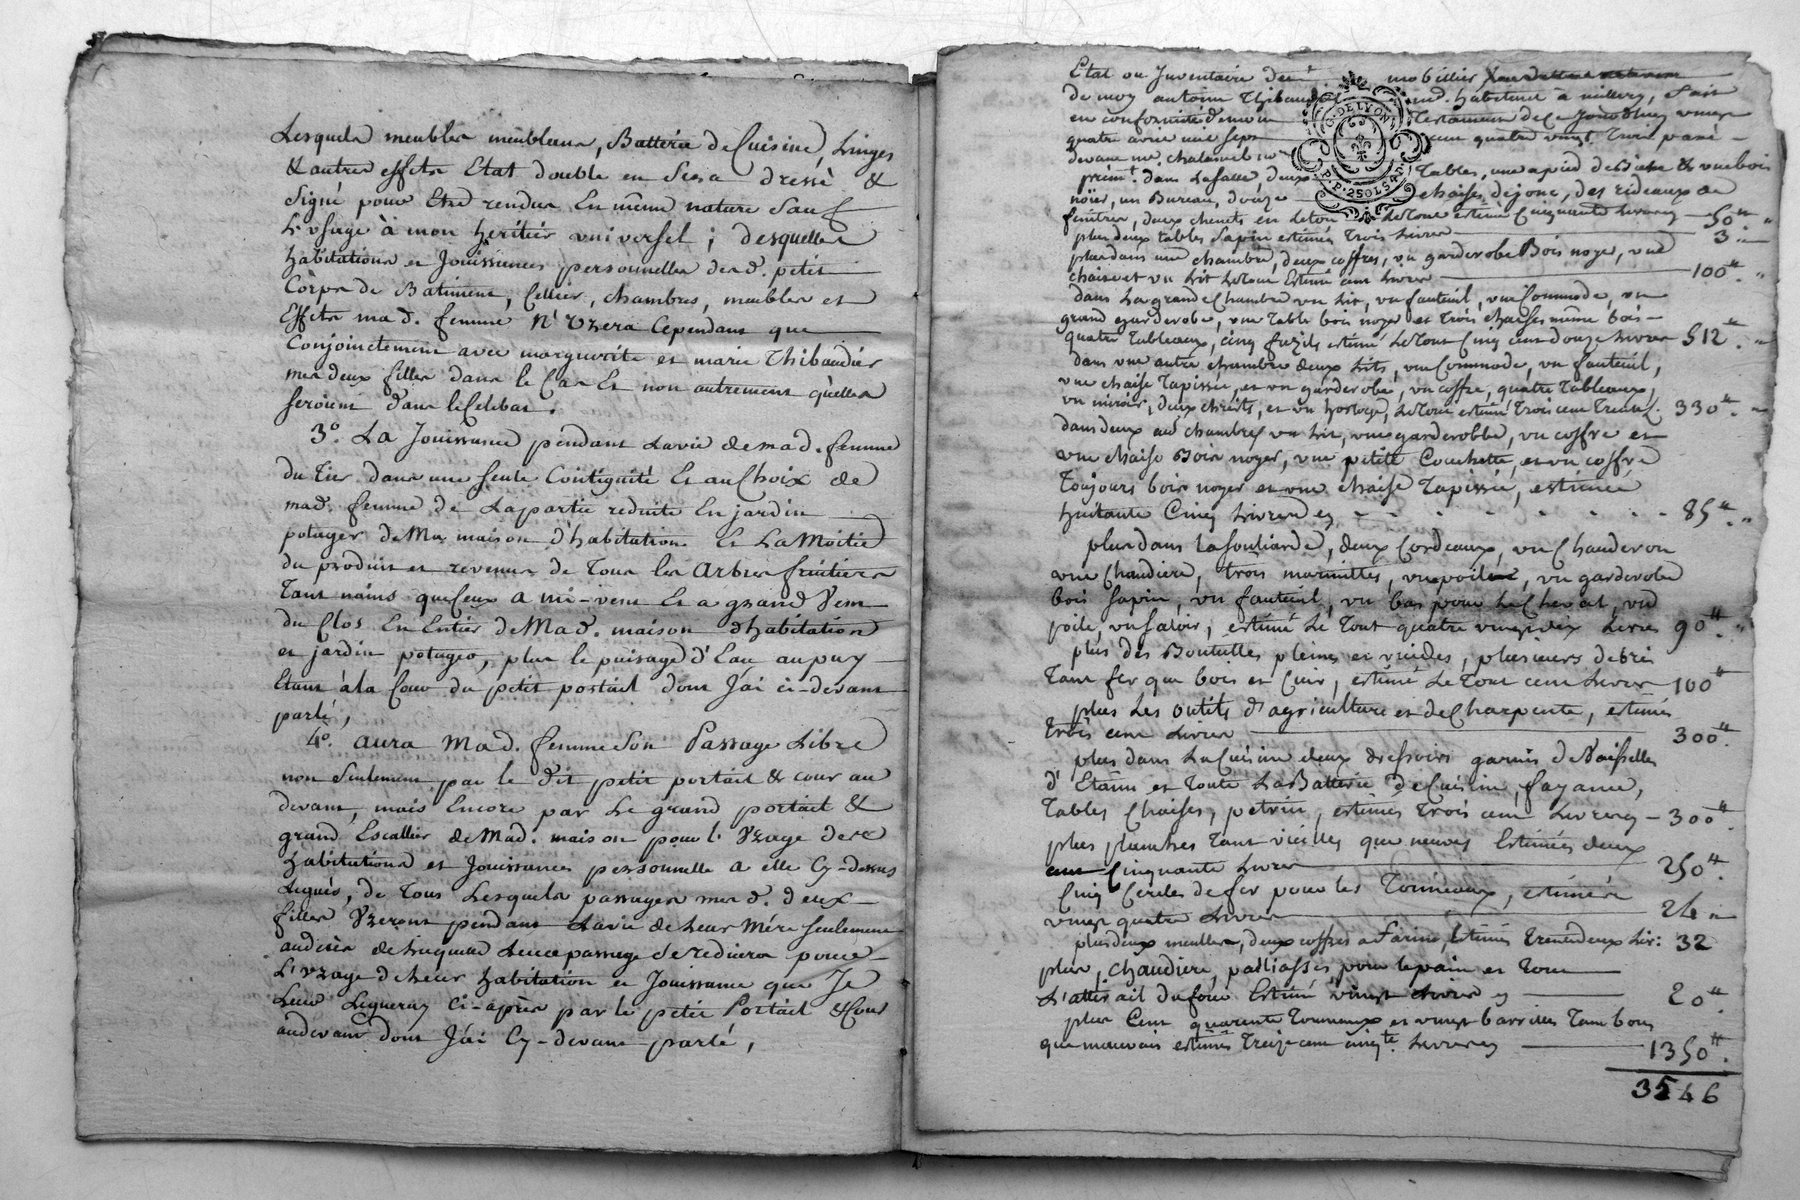 Lesquels meubles meublans, Batterie de Cuisine, Linges
& autres effets Etat double en Sera dressé &
Signé pour Etre rendus En même nature Sauf
L'usage à mon heritier universel ; desquelles
habitations et Jouissances personnelles dud. petit
Corps de Batiment, Cellier, chambres, meubles et
Effets mad. femme N'Uzera Cependant que
Conjointement avec marguerite et marie Thibaudier
mes deux filles dans le Cas Et non autrement qu'elles
seroient dans le Celibat.
3º. La Jouissance pendant la vie de mad. femme
du tier dans une seule Contiguité Et au Choix de
mad. femme de la partie reduite En jardin
potager de Ma maison d'habitation Et La Moitié
du produit et revenus de Tous les Arbres fruitiers
Tant nains que Ceux a mi-vent Et a grand Vent
du Clos En Entier de Mad. maison d'habitation
et jardin potager, plus le puisage d'Eau au puy
Etant à la Cour du petit portail dont J'ai ci-devant
parlé,
4º. aura Mad. femme Son Passage Libre
non seulement par le dit petit portail & cour au
devant, mais Encore par Le grand portail &
grand Escallier de Mad. maison pour l'Uzage des
habitations et Jouissances personnelle a elle Cy-dessus
Legués, de Tous Lesquels passages mes d. deux
filles Uzeront pendant La vie de Leur Mére seulement
au décès de Laquelle Leur passage se reduira pour
L'uzage de leur habitation et Jouissance que Je
Leur Legueray ci-après par le petit Portail & Cour
au devant dont J'ai Cy-devant parlé,
Etat ou Inventaire des mobillier
de moy antoine Thibaudier habitant à millery, fait
en conformité de mon Testament de Ce Jourd'huy vingt
quatre avril mil sept cent quatre vingt Trois passé
devant me.
prem.t dans La Salle deux Tables, une a pied de Biche &
noïer, un Bureau, douze chaises de jonc, des rideaux de
fenêtres, deux chenets en Leton Le Tout estimé Cinquante Livres 50 ₶
plus deux tables Sapin estimés Trois Livres 3
plus dans une chambre, deux coffres, un garderobe Bois noyer, une
chaise et un Lit Le tout Estimé cent Livres 100 ₶
dans La grande Chambre un Lit, un fauteuil, une Commode, un
grand garderobe, une Table bois noyer et trois chaises même bois
quatre Tableaux, cinq fuzils estimé Le Tout Cinq cent douze Livres 512 ₶
dans une autre chambre deux Lits, une Commode, un fauteuil,
une chaise Tapissée, et un garderobe, un coffre, quatre Tableaux,
un miroir, deux christs, et un horloge, Le Tout estimé Trois cent Trente L. 330 ₶
dans deux au chambres un Lit, une garderobbe, un coffre et
une chaise Bois noyer, une petite Couchette, et un coffre
Toujours bois noyer et une chaise Tapissée, estimée
huitante Cinq Livres 85 ₶
plus dans La Souliarde, deux Cordeaux, un Chauderon
une Chaudiere, trois marmittes, une poile, un garderobe
bois sapin, un fauteuil, un bas pour Le Cheval, une
poile, un saloir, estimé Le Tout quatre vingt dix Livres 90 ₶
plus des Bouteilles pleines et vuides, plusieurs debris
Tant fer que bois et Cuir, estimé Le Tout cent Livres 100 ₶
plus Les outils d'agriculture et de Charpente, estimés
Trois cent Livres 300 ₶
plus dans La Cuisine deux dressoirs garnis de Vaisselles
d'Etain et Toute La Batterie de Cuisine, fayance,
Tables Chaises, petrin, estimés Trois cent Livres 300 ₶
plus planches Tant vieilles que neuves Estimées deux
cent Cinquante Livres 250 ₶
Cinq Cercles de fer pour les Tonneaux, estimés
vingt quatre Livres 24
plus deux meulles, deux coffres a Farine, Estimés Trente deux Liv: 32
plus, Chaudiere, palliasses, pour le pain et Tout
L'attirail du four Estimé vingt Livres 20 ₶
plus Cent quarente Tonneaux et vingt barrilles Tant bons
que mauvais estimés Treize cent cinq.te Livres 1350 ₶
3546
G. DE LYON
P.P. 2 SOLS 8